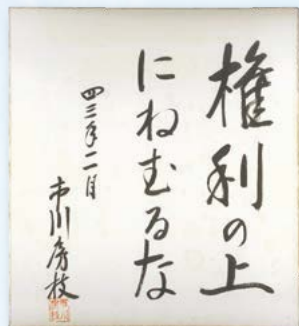 権利の上
にねむるな
四三年二月
市川房枝